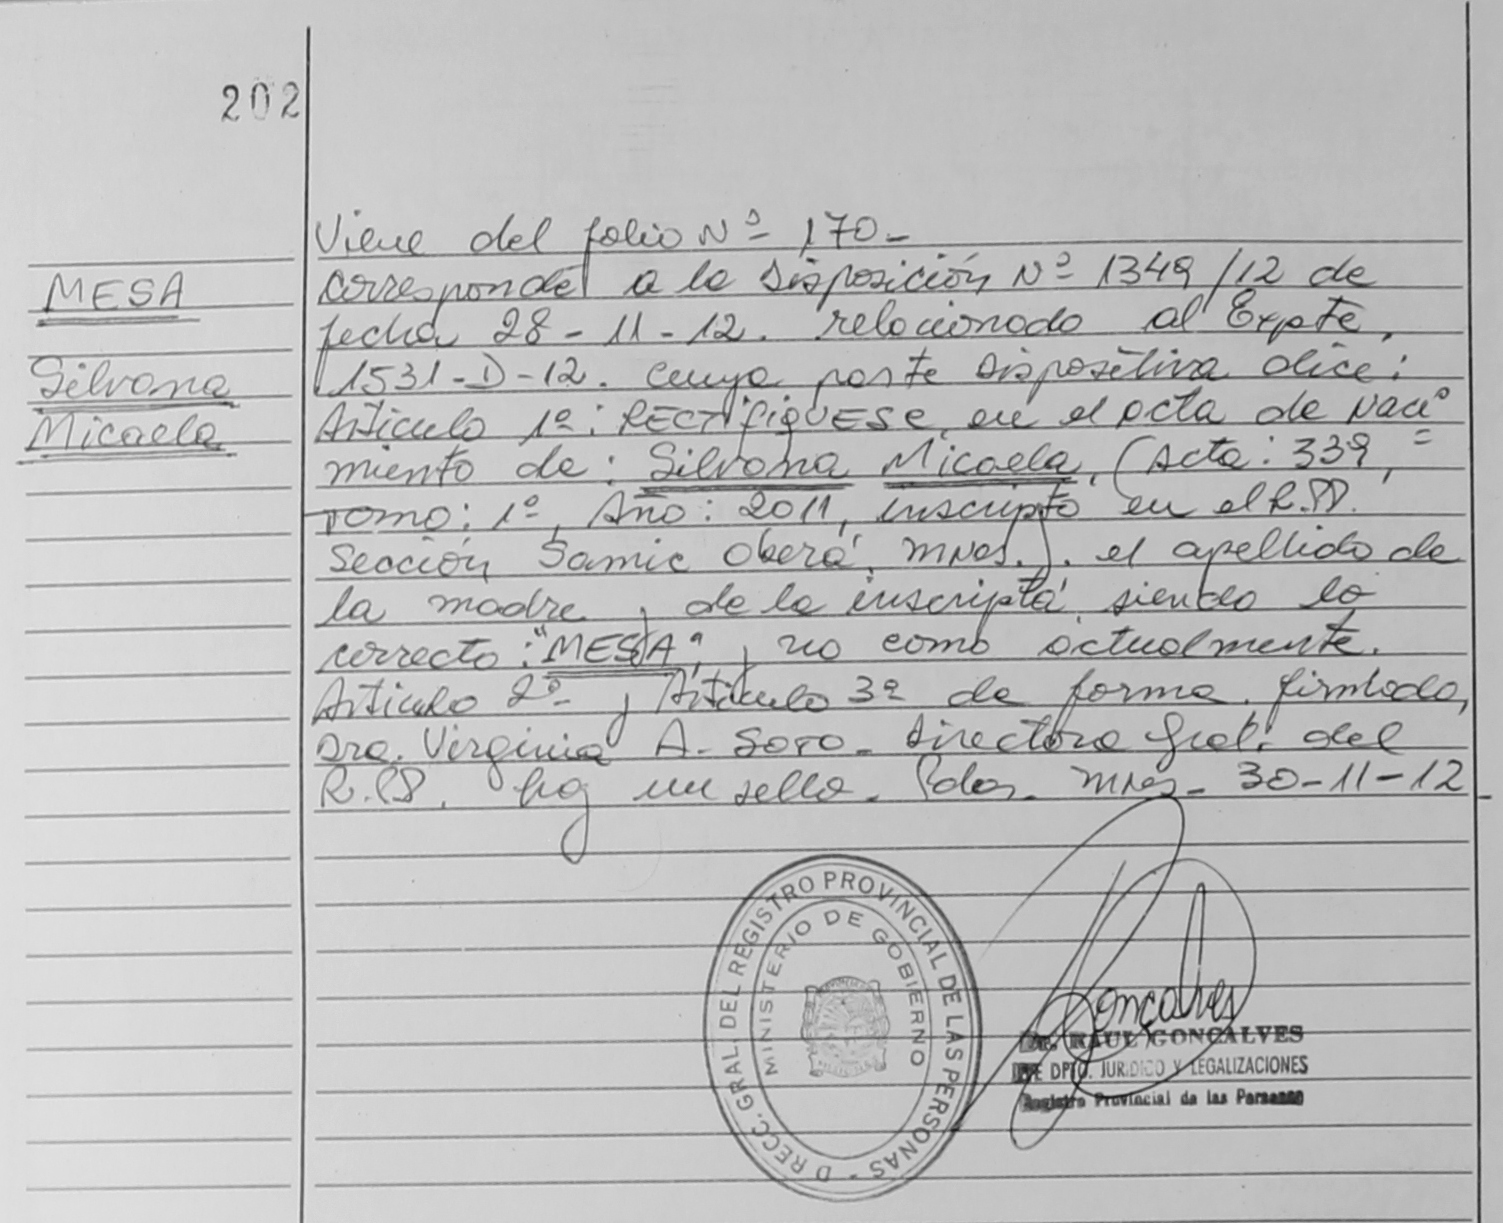 202
MESA
Silvana
Micaela
Viene del folio Nº 170-
corresponde a la Disposición Nº 1349/12 de
fecha 28-11-12. relacionado al Expte,
1531-D-12. cuya parte dispositiva dice:
Artículo 1º: RECTIFIQUESE, en el acta de Naci=
miento de: Silvana Micaela, (Acta: 339,
Tomo: 1º, Año: 2011, inscripta en el R.PP.
Sección Samic Oberá, Mnes.). el apellido de
la madre y de la inscripta siendo lo
correcto: "MESA", y no como actualmente.
Artículo 2º y Artículo 3º de forma. firmado,
Dra. Virginia A. SOTO- Directora Gral. del
R.PP. hay un sello. Pdas. Mnes- 30-11-12
DIRECC. GRAL. DEL REGISTRO PROVINCIAL DE LAS PERSONAS -
MINISTERIO DE GOBIERNO
Goncalves
Dr. RAUL GONCALVES
JEFE DPTO. JURIDICO Y LEGALIZACIONES
Registro Provincial de las Personas